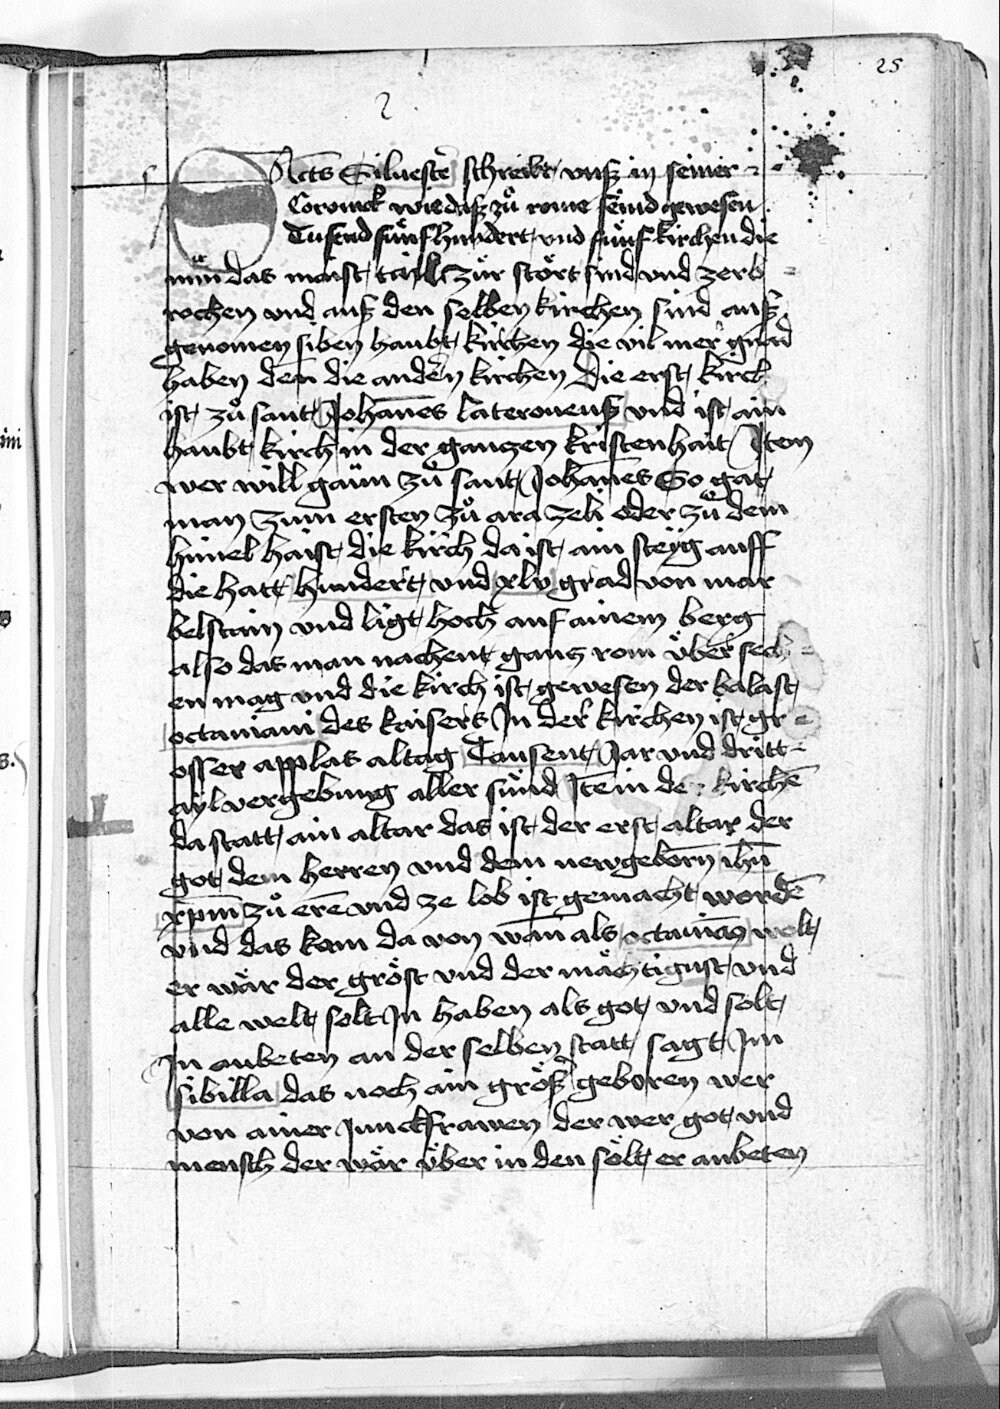 25
SActs Siluestẽ schreibt vnß in seiner
Coronick wie daß zů rome seind gewesen
Tusend fünfhundert vnd fünf kirchen die
nun das maist tayl zůr stört sind vnd zerb
rochen vnd auß den selben kirchen sind auß
genomen siben haubt kirchen die vil mer gnad
haben deñ die andern kirchen Die erst kirch
ist zů sant Johañes lateronenß vnd ist ain
haubt kirch in der ganczen kristenhait Item
wer will gaün zů sant Johañes So gat
man zum ersten zů ara zeli oder zů dem
himel haist die kirch da ist ain steÿg auff
die hatt hundert vnd xlv grad von mar
belstain vnd ligt hoch auf ainem berg
also das man nachent gancz rom über sech
en mag vnd die kirch ist gewesen der balast
octauiani des kaisers In der kirchen ist gr
osser applas altag Tausent Jar vnd dritt
aÿl vergebung aller sünd Item in der kirchẽ
da statt ain altar das ist der erst altar der
got dem herren vnd dem newgeborñ ihũ
xp̄m zů ere vnd ze lob ist gemacht wordẽ
vnd das kam da von wañ als octauian wolt
er wär der gröst vnd der mächtigust vnd
alle welt solt In haben als got vnd solt
In anbeten an der selben statt sagt Im
sibilla das noch ain größer geboren wer
von ainer Junckfrawen der wer got vnd
mensch der wär über in den sölt er anbeten